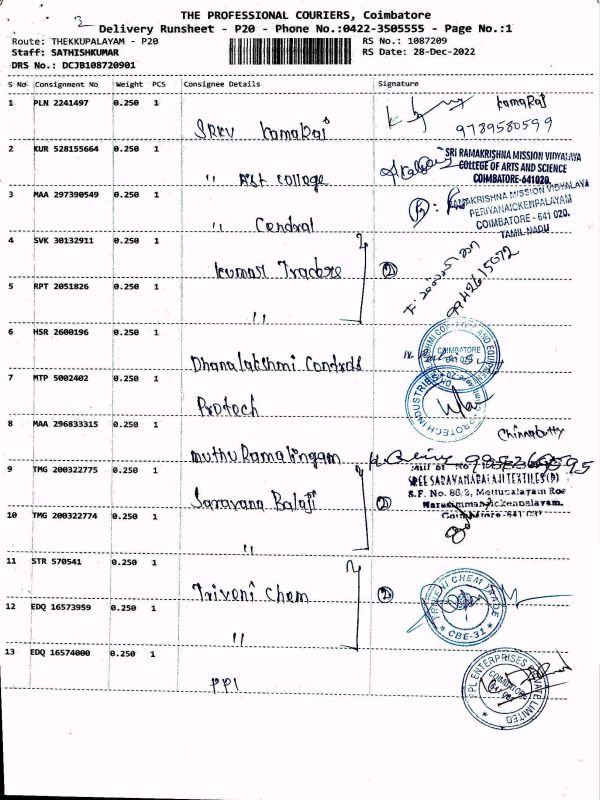 2
THE PROFESSIONAL COURIERS, Coimbatore
Delivery Runsheet - P20 - Phone No.:0422-3505555 - Page No.:1
Route: THEKKUPALAYAM - P20
RS No.: 1087209
Staff: SATHISHKUMAR
RS Date: 28-Dec-2022
DRS No.: DCJB108720901
S No Consignment No Weight PCS Consignee Details Signature
1 PLN 2241497 0.250 1 SRKV Kamaraj Kamaraj
9789580599
2 KUR 528155664 0.250 1 " Art College
SRI RAMAKRISHNA MISSION VIDYALAYA
COLLEGE OF ARTS AND SCIENCE
COIMBATORE-641020.
3 MAA 297390549 0.250 1 " Central
RAMAKRISHNA MISSION VIDYALAYA
PERIYANAICKENPALAYAM
COIMBATORE - 641 020.
TAMIL NADU
4 SVK 30132911 0.250 1 Kumar Traders 2
9942615072
5 RPT 2051826 0.250 1 "
6 HSR 2600196 0.250 1 Dhanalakshmi Controls
COIMBATORE
7 MTP 5002402 0.250 1 Protech
PROTECH INDUSTRIES
8 MAA 296833315 0.250 1 Muthu Ramalingam Chinnakutty
9 TMG 200322775 0.250 1 Saravana Balaji 2
SREE SARAVANABALAJI TEXTILES (P)
S.F. No. 86/2, Mettupalayam Roa
Narasimmanaickenpalayam.
Coimbatore-641 031
10 TMG 200322774 0.250 1 "
11 STR 570541 0.250 1 Triveni Chem 2
TRIVENI CHEM TRADE
CBE-31
12 EDQ 16573959 0.250 1 "
13 EDQ 16574000 0.250 1 PPI
PPL ENTERPRISES PRIVATE LIMITED
COIMBATORE